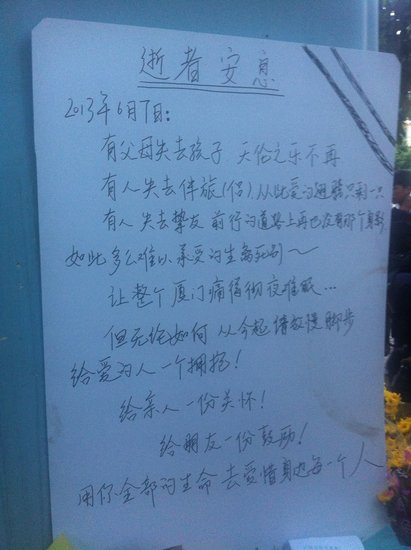 逝者安息
2013年6月7日:
有父母失去孩子 天伦之乐不再
有人失去伴旅(侣) 从此爱的翅膀只剩一只
有人失去挚友 前行的道路上再也没有那个身影
如此多么难以承受的生离死别～
让整个厦门痛得彻夜难眠...
但无论如何 从今起 请放慢脚步
给爱的人一个拥抱!
给亲人一份关怀!
给朋友一份鼓励!
用你全部的生命 去爱惜身边每一个人